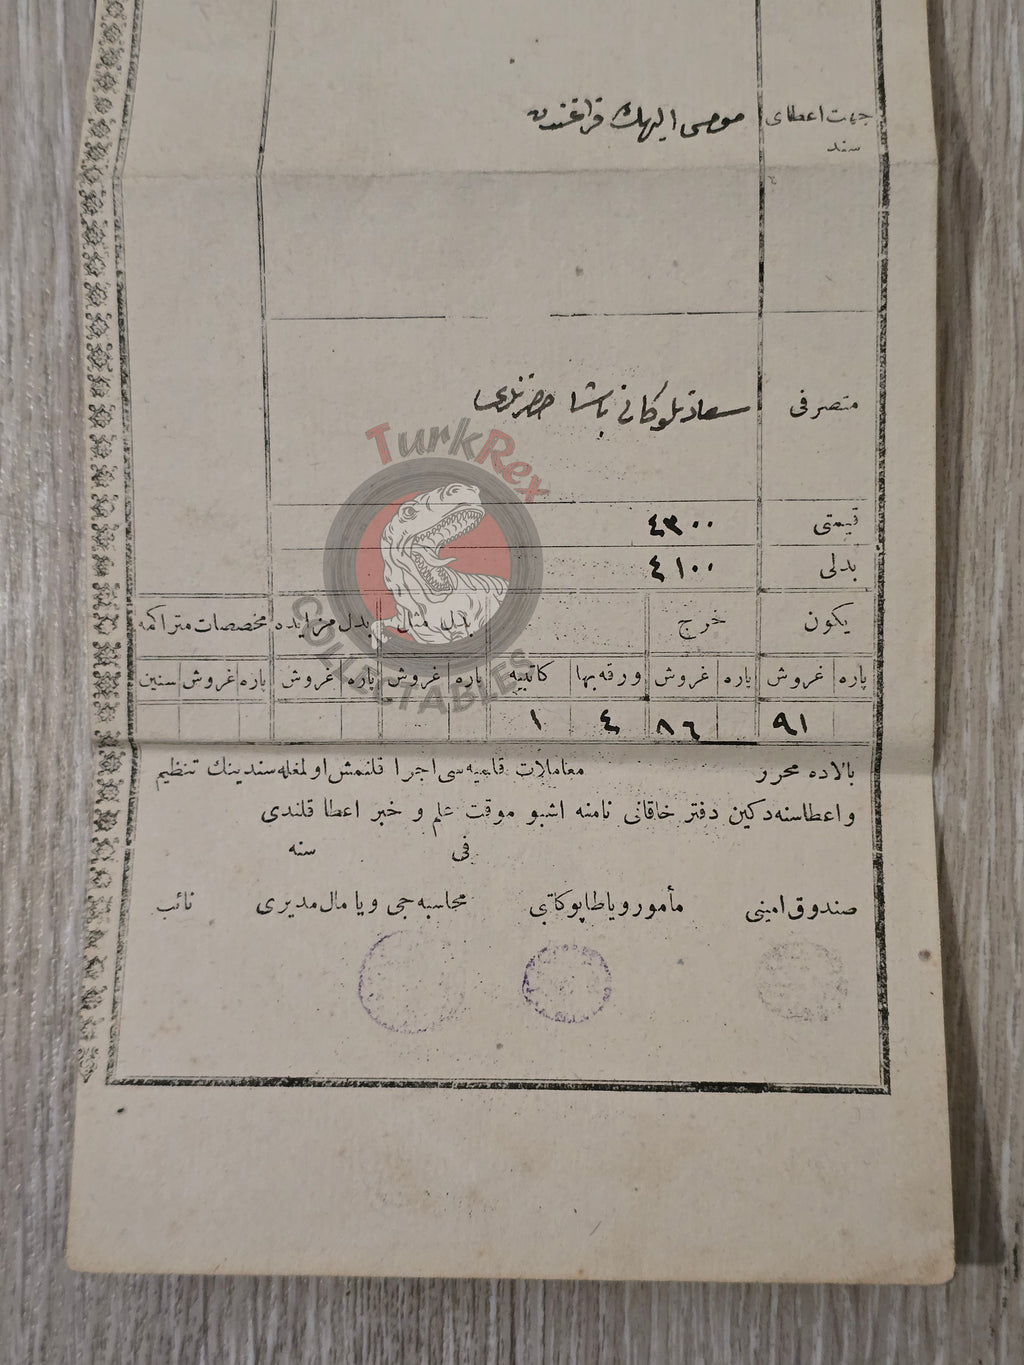 جهت اعطای
سند
مومی الیهك فراغندن
متصرفی
سعادتلو كانی پاشا حضرتلری
قیمتی
٤٣٠٠
بدلی
٤١٠٠
یكون خرج بدل مثل بدل مزایده مخصصات متراكمه
پاره غروش پاره غروش ورقه بها كاتبیه پاره غروش پاره غروش پاره غروش سنین
٩١ ٨٦ ٤ ١
بالاده محرر معاملات قلمیه سی اجرا قلنمش اولمغله سندینك تنظیم
و اعطاسنه دكین دفتر خاقانی نامنه اشبو موقت علم و خبر اعطا قلندی
فی سنه
صندوق امینی مأمور ویا طاپو كاتبی محاسبه جی ویا مال مدیری نائب
TurkRex
COLLECTABLES